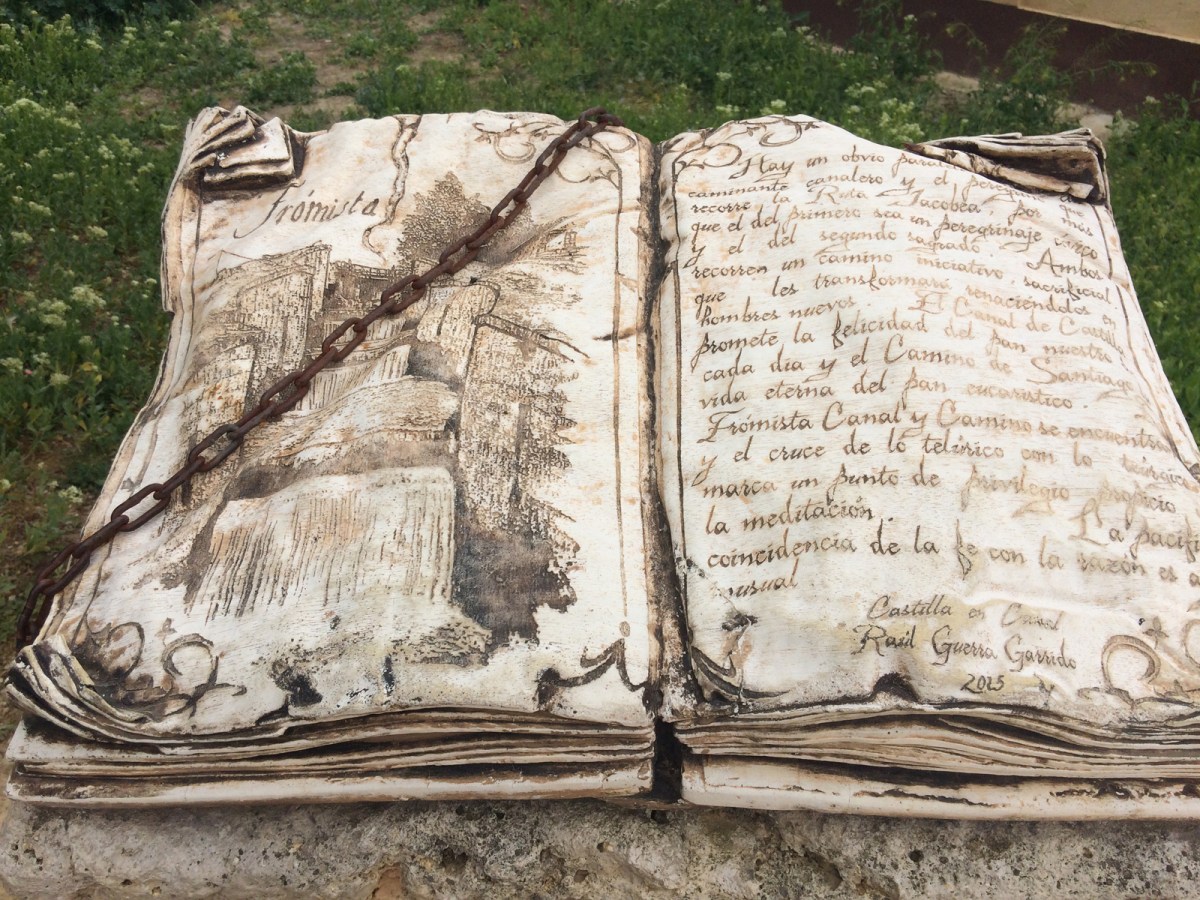 Frómista
Hay un obvio
caminante canalero y el
recorre la Ruta Jacobea, por más
que el del primero sea un peregrinaje
y el del segundo sagrado. Ambos
recorren un camino iniciativo sacrificial
que les transformará renaciéndoles en
hombres nuevos. El Canal de Castilla
promete la felicidad del pan nuestro
cada día y el Camino de Santiago
vida eterna del pan eucarístico.
Frómista Canal y Camino se encuentra
y el cruce de lo telúrico con lo
marca un punto de privilegio propicio
la meditación. La
coincidencia de la fe con la razón es
inusual
Castilla en Canal
Raúl Guerra Garrido
2015